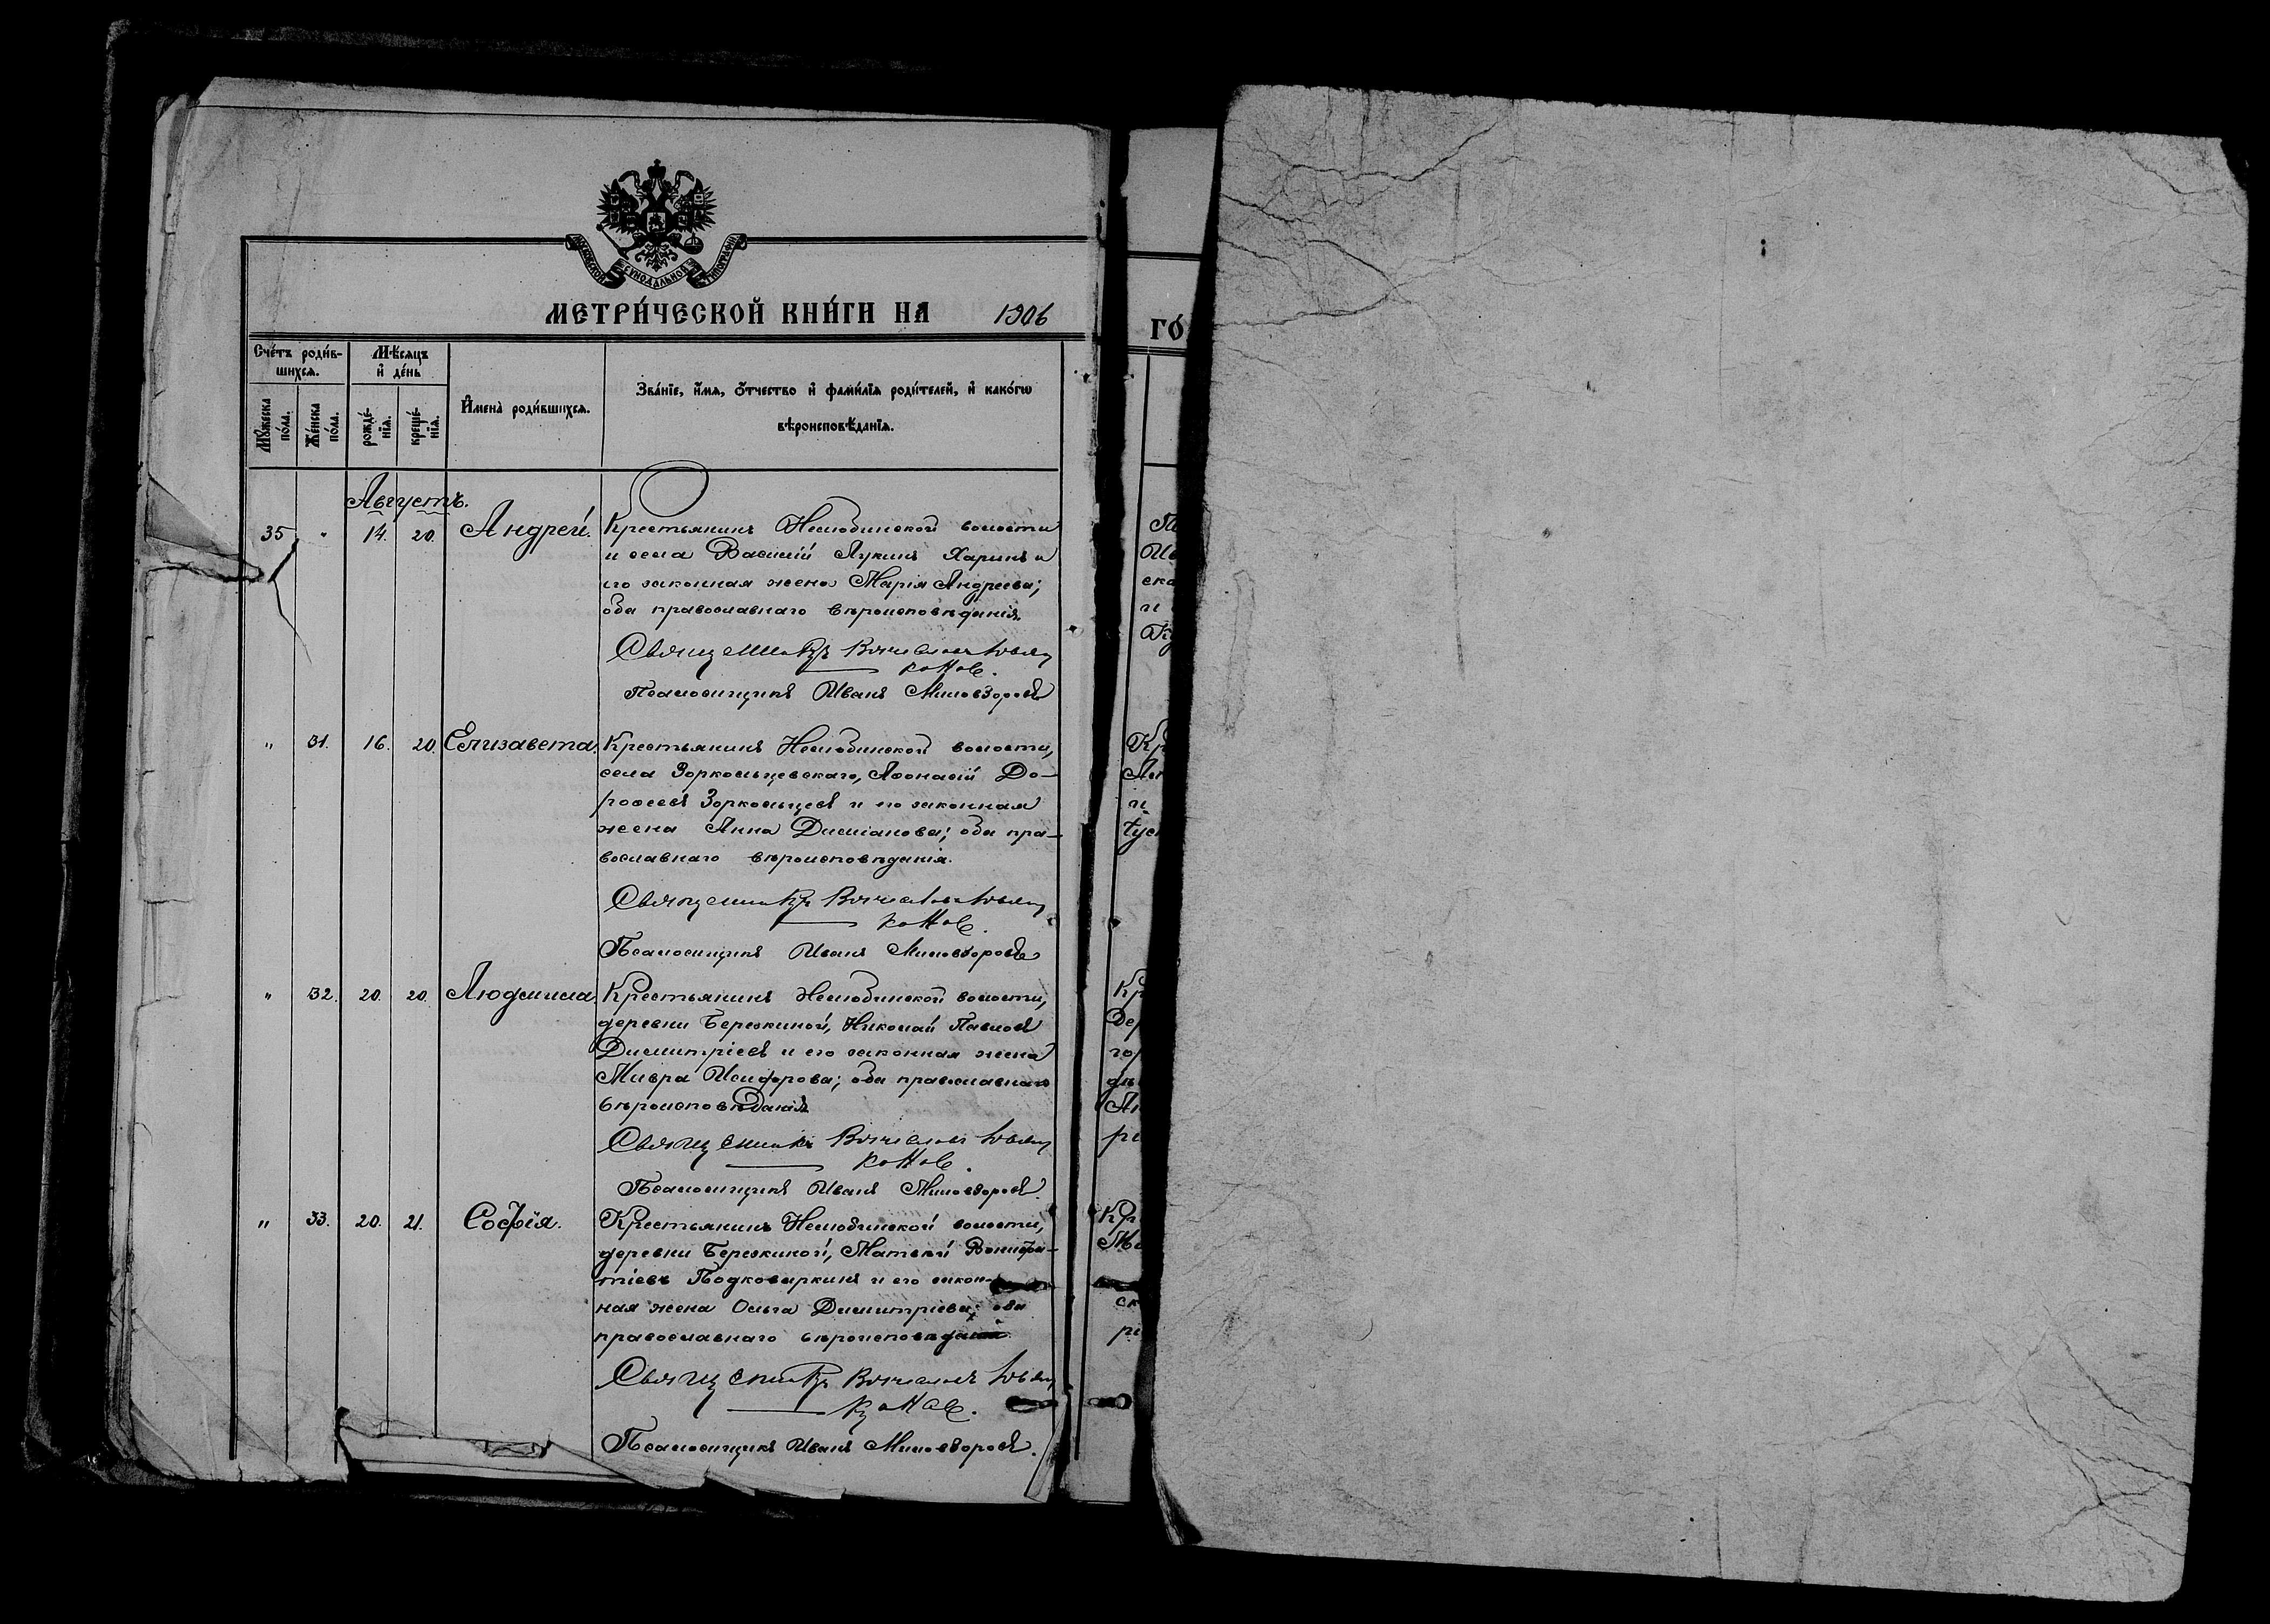 МОСКОВСКОЙ СѴНОДАЛЬНОЙ ТИПОГРАФІИ
МЕТРИ́ЧЕСКОЙ КНИ́ГИ НА 1906
ГО́
Сче́тъ роди́в-
шихсѧ.
Мѣ́сѧцъ
и҆ де́нь
Мꙋ́жеска
по́ла.
Же́нска
по́ла.
рожде́-
нїѧ.
креще́-
нїѧ.
И҆мена̀ роди́вшихсѧ.
Зва́нїе, и҆́мѧ, ѻ҆́тчество и҆ фами́лїѧ роди́телей, и҆ како́гѡ
вѣроисповѣ́данїѧ.
Августъ.
35 " 14. 20. Андрей. Крестьянинъ Нелюбинской волости
и села Василій Лукинъ Харинъ и
его законная жена Марія Андреева;
оба православнаго вѣроисповѣданія.
Священникъ Вячеславъ Ювен
Псаломщикъ Иванъ Миловзоровъ
" 31. 16. 20. Елизавета. Крестьянинъ Нелюбинской волости,
села Зоркольцевскаго, Аѳонасій До-
роѳеевъ Зоркольцевъ и его законная
жена Анна Дамианова; оба пра-
вославнаго вѣроисповѣданія.
Священникъ Вячеславъ Ювен
Псаломщикъ Иванъ Миловзоровъ
" 32. 20. 20. Людмила. Крестьянинъ Нелюбинской волости,
деревни Березкиной, Николай Павловъ
Димитріевъ и его законная жена
Мавра Исидорова; оба православнаго
вѣроисповѣданія
Священникъ Вячеславъ Ювен
Псаломщикъ Иванъ Миловзоровъ.
" 33. 20. 21. Софія. Крестьянинъ Нелюбинской волости,
деревни Березкиной, Матвѣй Вонифа-
тіевъ Подковыркинъ и его закон-
ная жена Ольга Димитріева; оба
православнаго вѣроисповѣданія
Священникъ Вячеславъ Ювен
Псаломщикъ Иванъ Миловзоровъ.